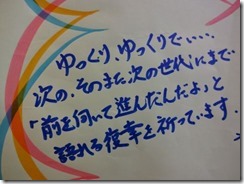 ゆっくり、ゆっくりで‥‥
次の、そのまた次の世代にまで
「前を向いて進んだんだよ」と
語れる復幸を祈っています。